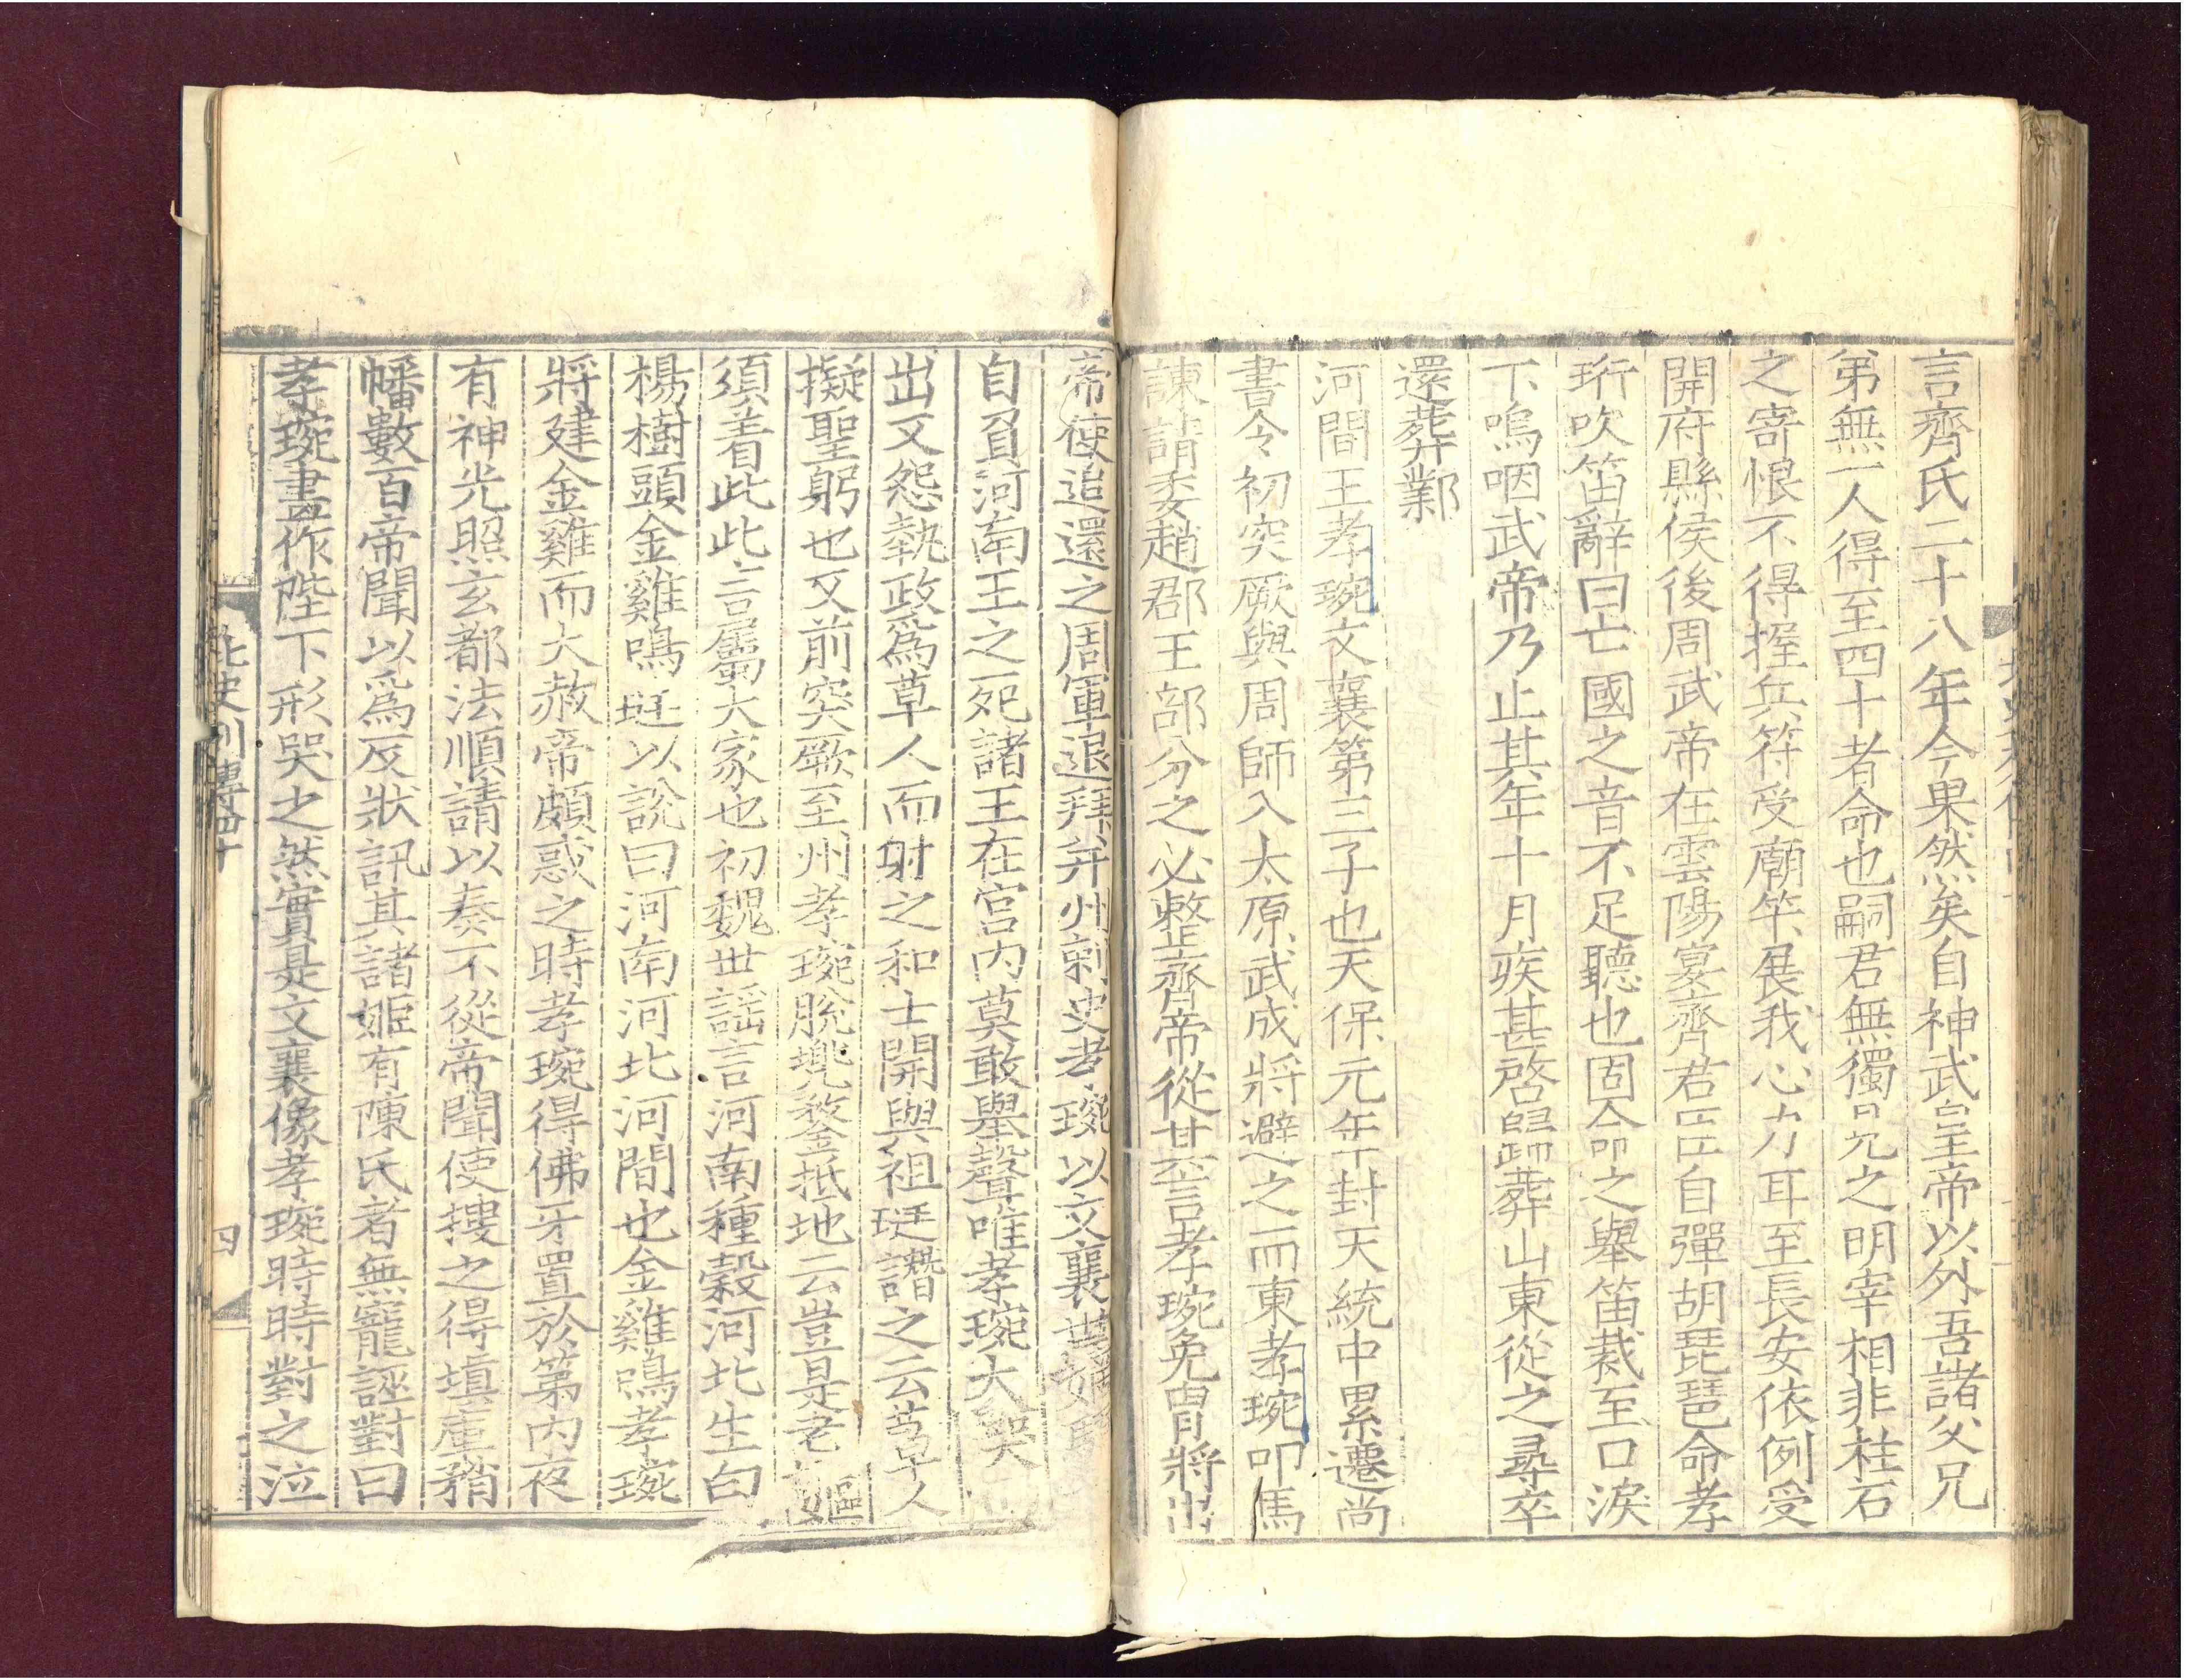 言齊氏二十八年今果然矣自神武皇帝以外吾諸父兄
弟無一人得至四十者命也嗣君無獨見之明宰相非柱石
之寄恨不得握兵符受廟筭展我心力耳至長安依例受
開府縣侯後周武帝在雲陽宴齊君臣自彈胡琵琶命孝
珩吹笛辭曰亡國之音不足聽也固命之舉笛裁至口淚
下嗚咽武帝乃止其年十月疾甚啓歸葬山東從之尋卒
還葬鄴
河間王孝琬文襄第三子也天保元年封天統中累遷尚
書令初突厥與周師入太原武成將避之而東孝琬叩馬
諫請委趙郡王部分之必整齊帝從其言孝琬免冑將出
帝使追還之周軍退拜并州刺史孝琬以文襄世嫡
自負河南王之死諸王在宮內莫敢舉聲唯孝琬大哭
出又怨執政爲草人而射之和士開與祖珽譖之云草人
擬聖躬也又前突厥至州孝琬脫兠鍪抵地云豈是老嫗
須着此此言屬大家也初魏世謡言河南種穀河北生白
楊樹頭金雞鳴珽以說曰河南河北河間也金雞鳴孝琬
將建金雞而大赦帝頗惑之時孝琬得佛牙置於第內夜
有神光照玄都法順請以奏不從帝聞使搜之得塡庫矟
幡數百帝聞以爲反狀訊其諸姬有陳氏者無寵誣對曰
孝琬畫作陛下形哭之然實是文襄像孝琬時時對之泣
北史列傳四十
四